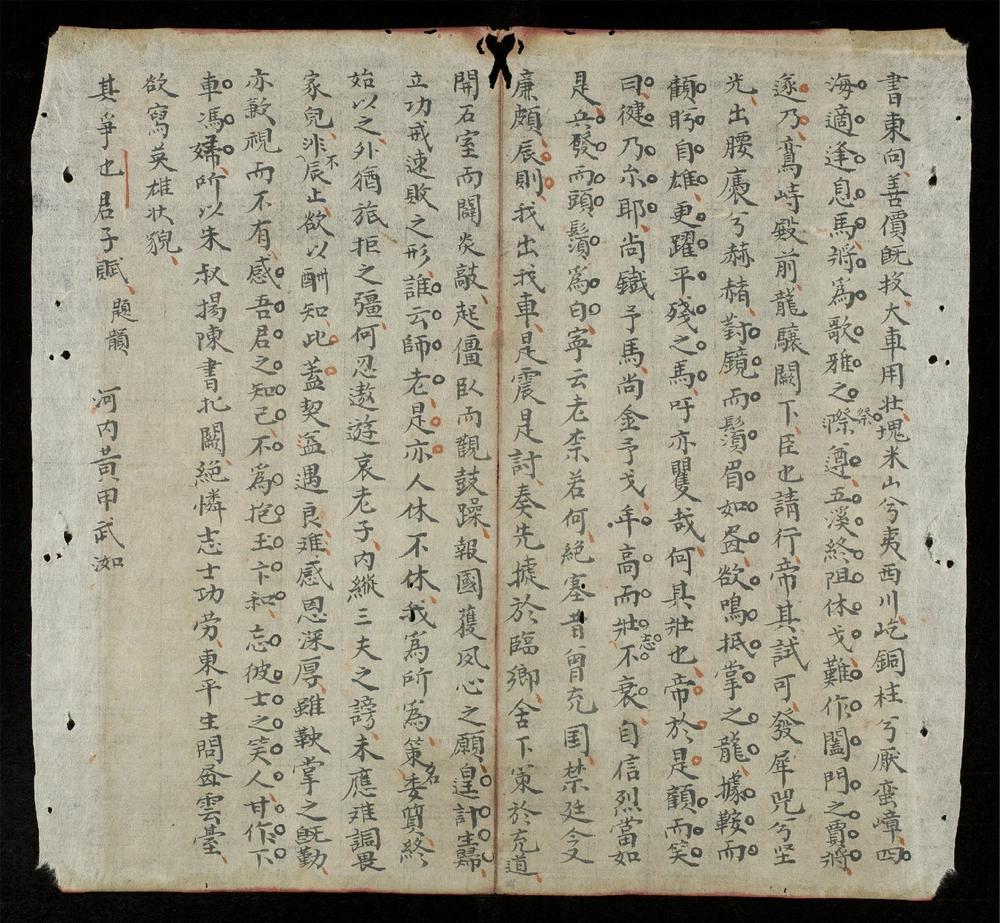 書東向、善價既投、大車用壯、塊米山兮夷西川、屹銅柱兮厭蛮嶂、四
海適逢息馬、將為歌雅之祭、遵五溪終阻休戈、難作闔門之賈將、
遂乃、鵉峙殿前、龍驤闕下、臣也請行、帝其試可、發犀兕兮坚
光、出腰𢊁兮赫赭、對鏡而鬚眉如𦘕、欲鳴抵掌之龍、據鞍而
顧眄自雄、更躍平殘之馬、吁亦矍哉、何其壯也、帝於是顧而笑
曰、健乃尔耶、尚鐵予馬、尚金予戈、年高而志不衰、自信烈當如
是、兵發而頭鬚為白、寧云老柰若何、絶塞昔曾充国、禁廷今又
廉頗、辰則、我出我車、是震是討、奏先據於臨鄉、舍下策於充道、
開石室而闢炎敲、起僵臥而觀鼓躁、報國獲夙心之願、皇計生歸、
立功戒速敗之形、誰云師老、是亦人休不休、我為所為、策名委質、終
始以之、外猶旅拒之彊、何忍遨遊哀老子、内縱三夫之謗、未應难詞畏
家兒、非不辰止、欲以酬知、此蓋契益遇良难、感恩深厚、雖鞅掌之既勤、
亦歉視而不有、感吾君之知己、不為抱玉卞和、忘彼士之笑人、甘作下
車馮婦、所以朱叔揚陳書扎闕、絶憐志士功劳、東平生問𦘕雲臺、
欲寫英雄状貌、
其爭也君子賦、題韻 河内黄甲武如